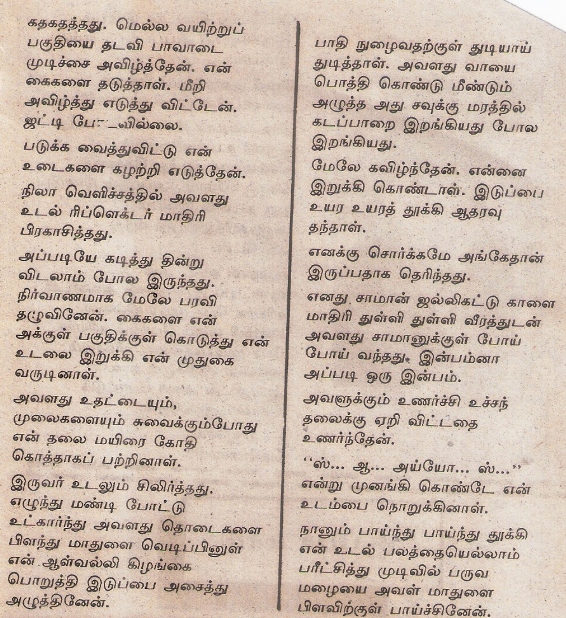 கதகதத்தது. மெல்ல வயிற்றுப்
பகுதியை தடவி பாவாடை
முடிச்சை அவிழ்த்தேன். என்
கைகளை தடுத்தாள். மீறி
அவிழ்த்து எடுத்து விட்டேன்.
ஜட்டி
படுக்க வைத்துவிட்டு என்
உடைகளை கழற்றி எடுத்தேன்.
நிலா வெளிச்சத்தில் அவளது
உடல் ரிப்ளெக்டர் மாதிரி
பிரகாசித்தது.
அப்படியே கடித்து தின்று
விடலாம் போல இருந்தது.
நிர்வாணமாக மேலே பரவி
தழுவினேன். கைகளை என்
அக்குள் பகுதிக்குள் கொடுத்து என்
உடலை இறுக்கி என் முதுகை
வருடினாள்.
அவளது உதட்டையும்,
முலைகளையும் சுவைக்கும்போது
என் தலை மயிரை கோதி
கொத்தாகப் பற்றினாள்.
இருவர் உடலும் சிலிர்த்தது.
எழுந்து மண்டி போட்டு
உட்கார்ந்து அவளது தொடைகளை
பிளந்து மாதுளை வெடிப்பினுள்
என் ஆள்வல்லி கிழங்கை
பொறுத்தி இடுப்பை அசைத்து
அழுத்தினேன்.
பாதி நுழைவதற்குள் துடியாய்
துடித்தாள். அவளது வாயை
பொத்தி கொண்டு மீண்டும்
அழுத்த அது சவுக்கு மரத்தில்
கடப்பாறை இறங்கியது போல
இறங்கியது.
மேலே கவிழ்ந்தேன். என்னை
இறுக்கி கொண்டாள். இடுப்பை
உயர உயரத் தூக்கி ஆதரவு
தந்தாள்.
எனக்கு சொர்க்கமே அங்கேதான்
இருப்பதாக தெரிந்தது.
எனது சாமான் ஜல்லிகட்டு காளை
மாதிரி துள்ளி துள்ளி வீரத்துடன்
அவளது சாமானுக்குள் போய்
போய் வந்தது. இன்பம்னா
அப்படி ஒரு இன்பம்.
அவளுக்கும் உணர்ச்சி உச்சந்
தலைக்கு ஏறி விட்டதை
உணர்ந்தேன்.
"ஸ்... ஆ... அய்யோ... ஸ்..."
என்று முனங்கி கொண்டே என்
உடம்பை நொறுக்கினாள்.
நானும் பாய்ந்து பாய்ந்து தூக்கி
என் உடல் பலத்தையெல்லாம்
பரீட்சித்து முடிவில் பருவ
மழையை அவள் மாதுளை
பிளவிற்குள் பாய்ச்சினேன்.